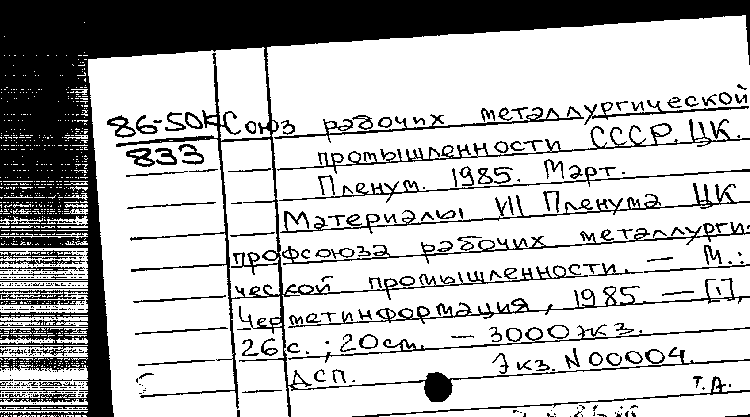 86-50К Союз рабочих металлургической
833 промышленности СССР. ЦК.
Пленум. 1985. Март.
Материалы VII Пленума ЦК
профсоюза рабочих металлурги-
ческой промышленности. — М.:
Черметинформация, 1985. — [1],
26 с.; 20 см. — 3000 экз.
ДСП. Экз. N 00004.
Т.Д.